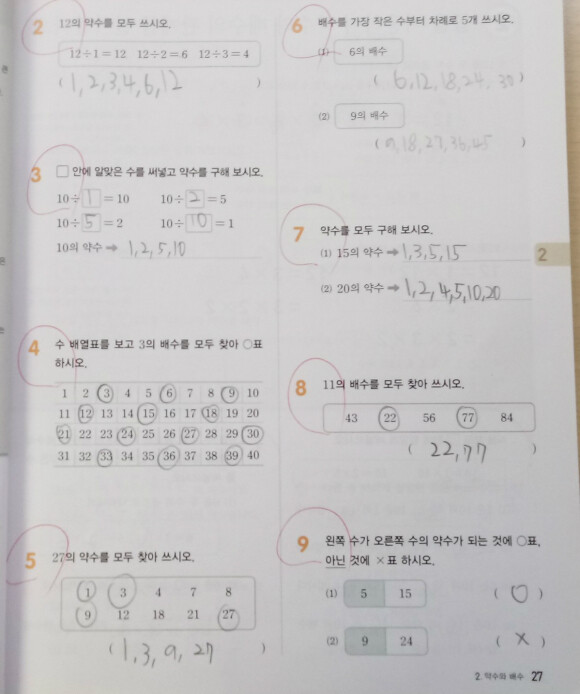 2 12의 약수를 모두 쓰시오.
12÷1=12 12÷2=6 12÷3=4
( 1, 2, 3, 4, 6, 12 )
3 □ 안에 알맞은 수를 써넣고 약수를 구해 보시오.
10÷1=10 10÷2=5
10÷5=2 10÷10=1
10의 약수 ➡ 1, 2, 5, 10
4 수 배열표를 보고 3의 배수를 모두 찾아 ○표
하시오.
1 2 3 4 5 6 7 8 9 10
11 12 13 14 15 16 17 18 19 20
21 22 23 24 25 26 27 28 29 30
31 32 33 34 35 36 37 38 39 40
5 27의 약수를 모두 찾아 쓰시오.
1 3 4 7 8
9 12 18 21 27
( 1, 3, 9, 27 )
6 배수를 가장 작은 수부터 차례로 5개 쓰시오.
(1) 6의 배수
( 6, 12, 18, 24, 30 )
(2) 9의 배수
( 9, 18, 27, 36, 45 )
7 약수를 모두 구해 보시오.
(1) 15의 약수 ➡ 1, 3, 5, 15
(2) 20의 약수 ➡ 1, 2, 4, 5, 10, 20
2
8 11의 배수를 모두 찾아 쓰시오.
43 22 56 77 84
( 22, 77 )
9 왼쪽 수가 오른쪽 수의 약수가 되는 것에 ○표,
아닌 것에 ×표 하시오.
(1) 5 15 ( ○ )
(2) 9 24 ( × )
2. 약수와 배수 27